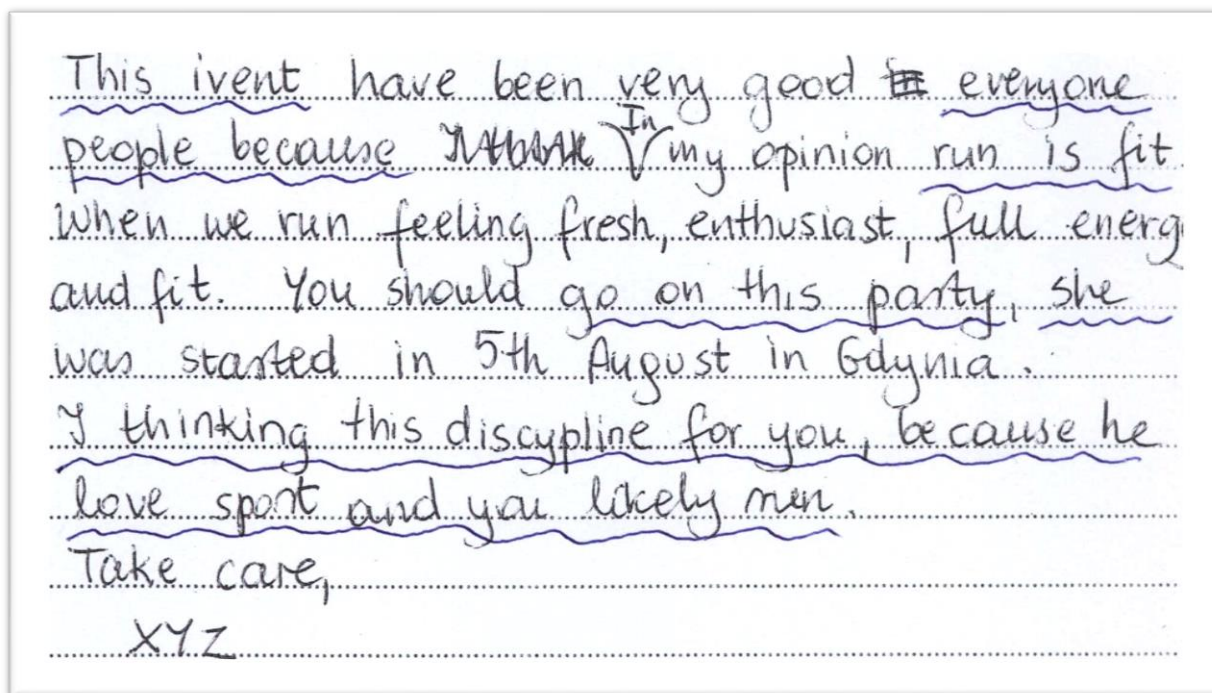 This ivent have been very good everyone
people because In my opinion run is fit
when we run feeling fresh, enthusiast, full energ
and fit. You should go on this party, she
was started in 5th August in Gdynia.
I thinking this discypline for you, because he
love sport and you likely run.
Take care,
XYZ